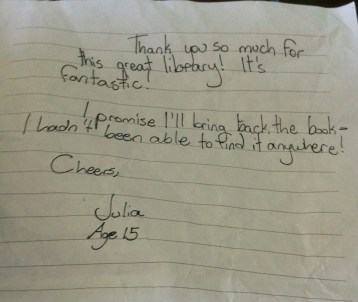 Thank you so much for
this great library! It's
fantastic.
I promise I'll bring back the book-
I hadn't been able to find it anywhere!
Cheers,
Julia
Age 15